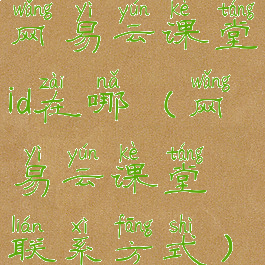 wǎng yì yún kè táng
网易云课堂
zài nǎ wǎng
id在哪(网
yì yún kè táng
易云课堂
lián xì fāng shì
联系方式)